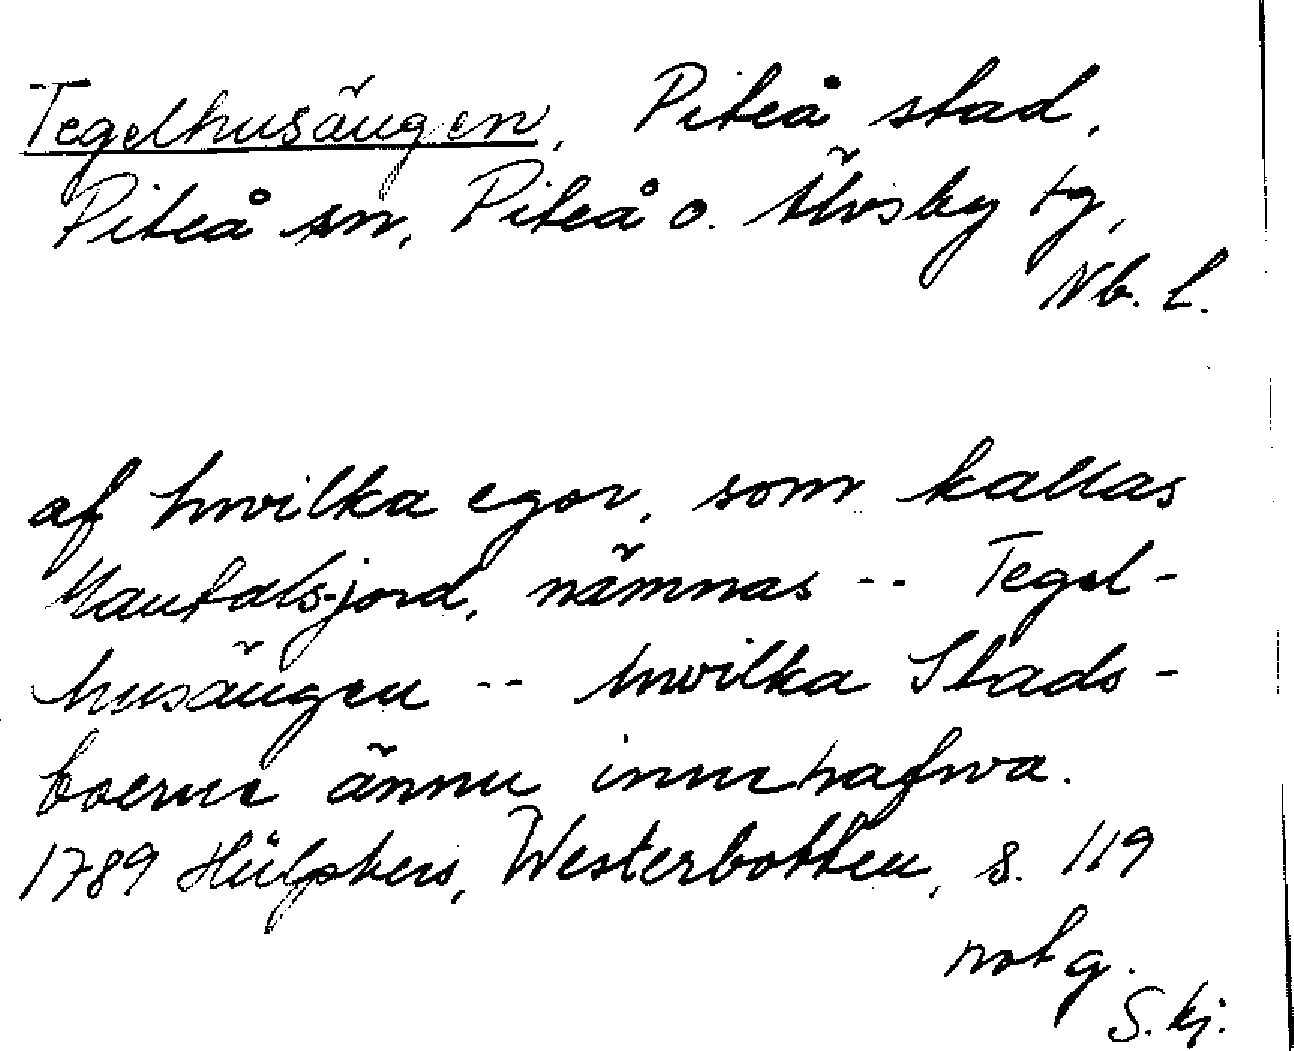 Tegelhusängen, Piteå stad,
Piteå sn, Piteå o. Älvsby tg,
Nb. l.
af hwilka egor, som kallas
Mantalsjord, nämnas -- Tegel-
husängen -- hwilka Stads-
boerne ännu innehafwa.
1789 Hülphers, Westerbotten, s. 119
not g.
S. kj.